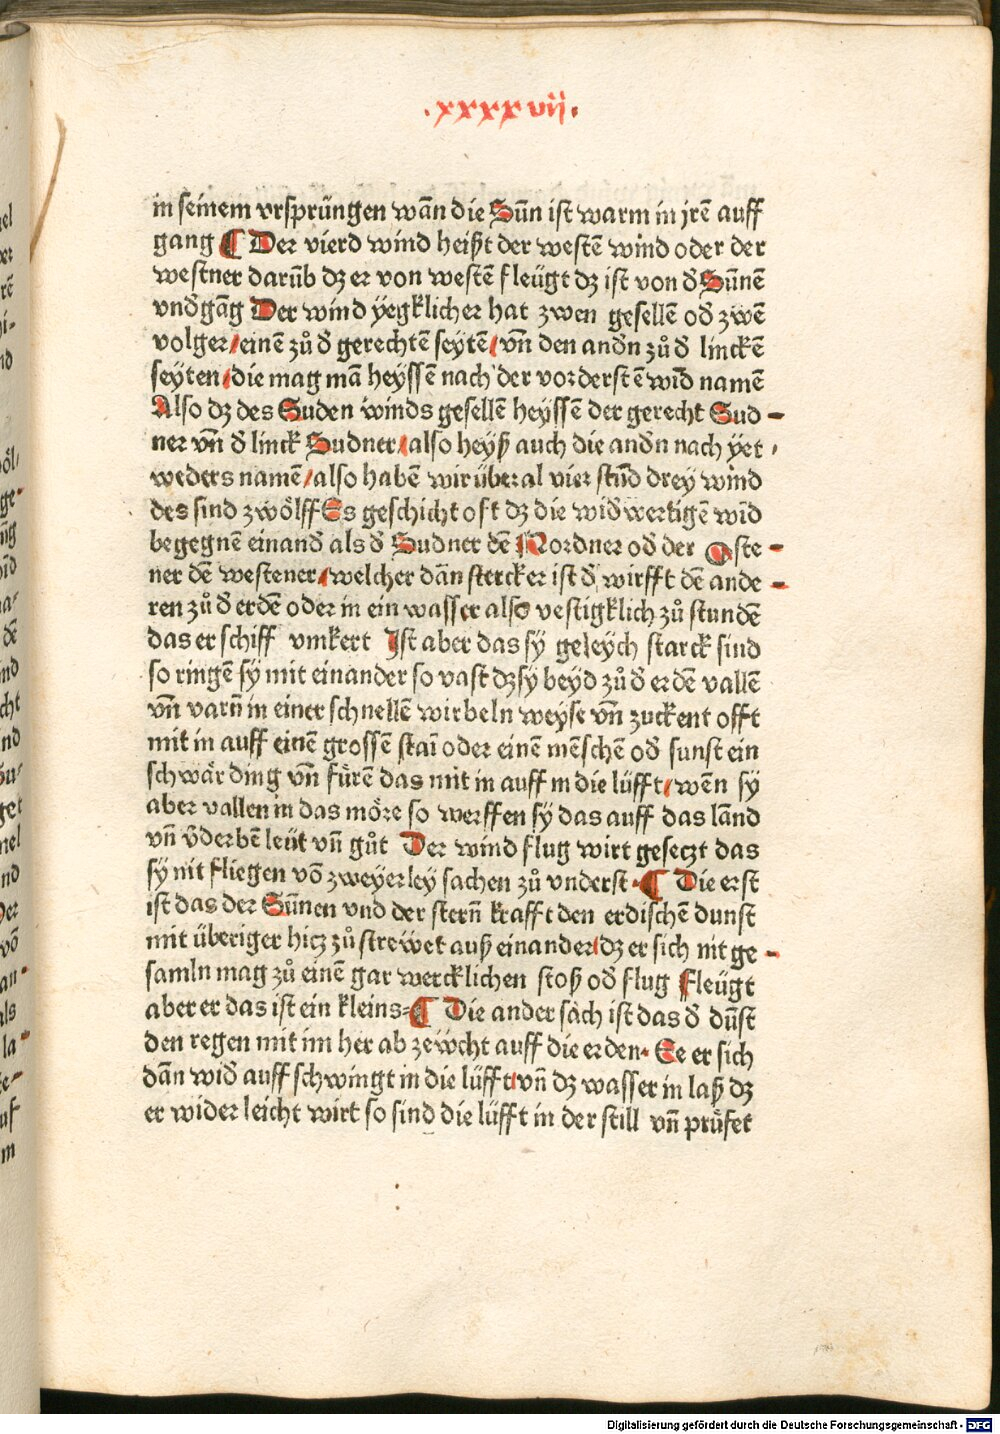 ·xxxxvii·
in seinem vrsprüngen wañ die Sũn ist warm in jrē auff
gang ¶ Der vierd wind heißt der westē wind oder der
westner darũb dz er von westē fleügt dz ist von đ Sũnē
vnđgãg Der wind ÿegklicher hat zwen gesellē ođ zwē
volger/einē zů đ gerechtē seytē/vñ den andñ zů đ linckē
seyten/die mag mã heyssē nach der vorderstē wĩd namē
Also dz des Suden winds gesellē heyssē der gerecht Sud-
ner vñ đ linck Sudner/also heyß auch die andñ nach yet-
weders namē/also habē wir überal vier stũd drey wind
des sind zwölff Es geschicht oft dz die widwertigē wĩd
begegnē einanđ als đ Sudner dē Nordner ođ der Oste-
ner dē westener/welcher dãn stercker ist đ wirfft dē ande-
ren zů đ erdē oder in ein wasser also vestigklich zů stundē
das er schiff vmkert Jst aber das sy geleych starck sind
so ringē sy mit einander so vast dz sy beyd zů đ erdē vallē
vñ varñ in einer schnellē wirbeln weyse vñ zuckent offt
mit in auff einē grossē stai oder einē mēschē ođ sunst ein
schwår ding vñ fürē das mit in auff in die lüfft/wēn sy
aber vallen in das möre so werffen sy das auff das lãnd
vñ v̄derbē leüt vñ gůt Der wind flug wirt geseczt das
sy nit fliegen võ zweyerley sachen zů vnderst·¶ Die erst
ist das der Sũnen vnd der sterñ krafft den erdischē dunst
mit überiger hicz zů strewet auß einander/dz er sich nit ge-
samln mag zů einē gar wercklichen stoß ođ flug Fleügt
aber er das ist ein kleins=¶ Die ander sach ist das đ dũst
den regen mit im her ab zewcht auff die erden· Ee er sich
dãn wiđ auff schwingt in die lüfft/vñ dz wasser in laß dz
er wider leicht wirt so sind die lüfft in der still vñ průfet
Digitalisierung gefördert durch die Deutsche Forschungsgemeinschaft - DFG